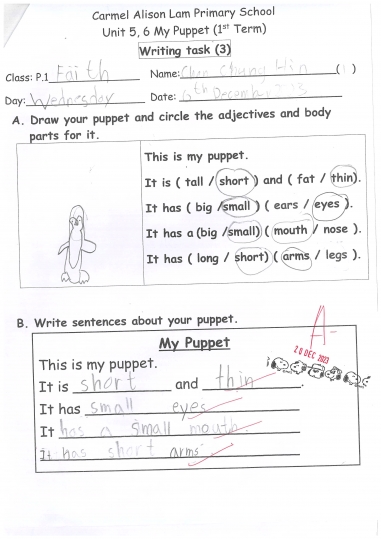 Carmel Alison Lam Primary School
Unit 5, 6 My Puppet (1st Term)
Writing task (3)
Class: P.1 Faith Name: Chung ( )
Day: Wednesday Date: 6th December
A. Draw your puppet and circle the adjectives and body
parts for it.
This is my puppet.
It is ( tall / short ) and ( fat / thin).
It has ( big /small ) ( ears / eyes ).
It has a (big /small) ( mouth / nose ).
It has ( long / short) ( arms / legs ).
B. Write sentences about your puppet.
A-
20 DEC 2023
My Puppet
This is my puppet.
It is short and thin.
It has small eyes
It has a small mouth.
It has short arms.